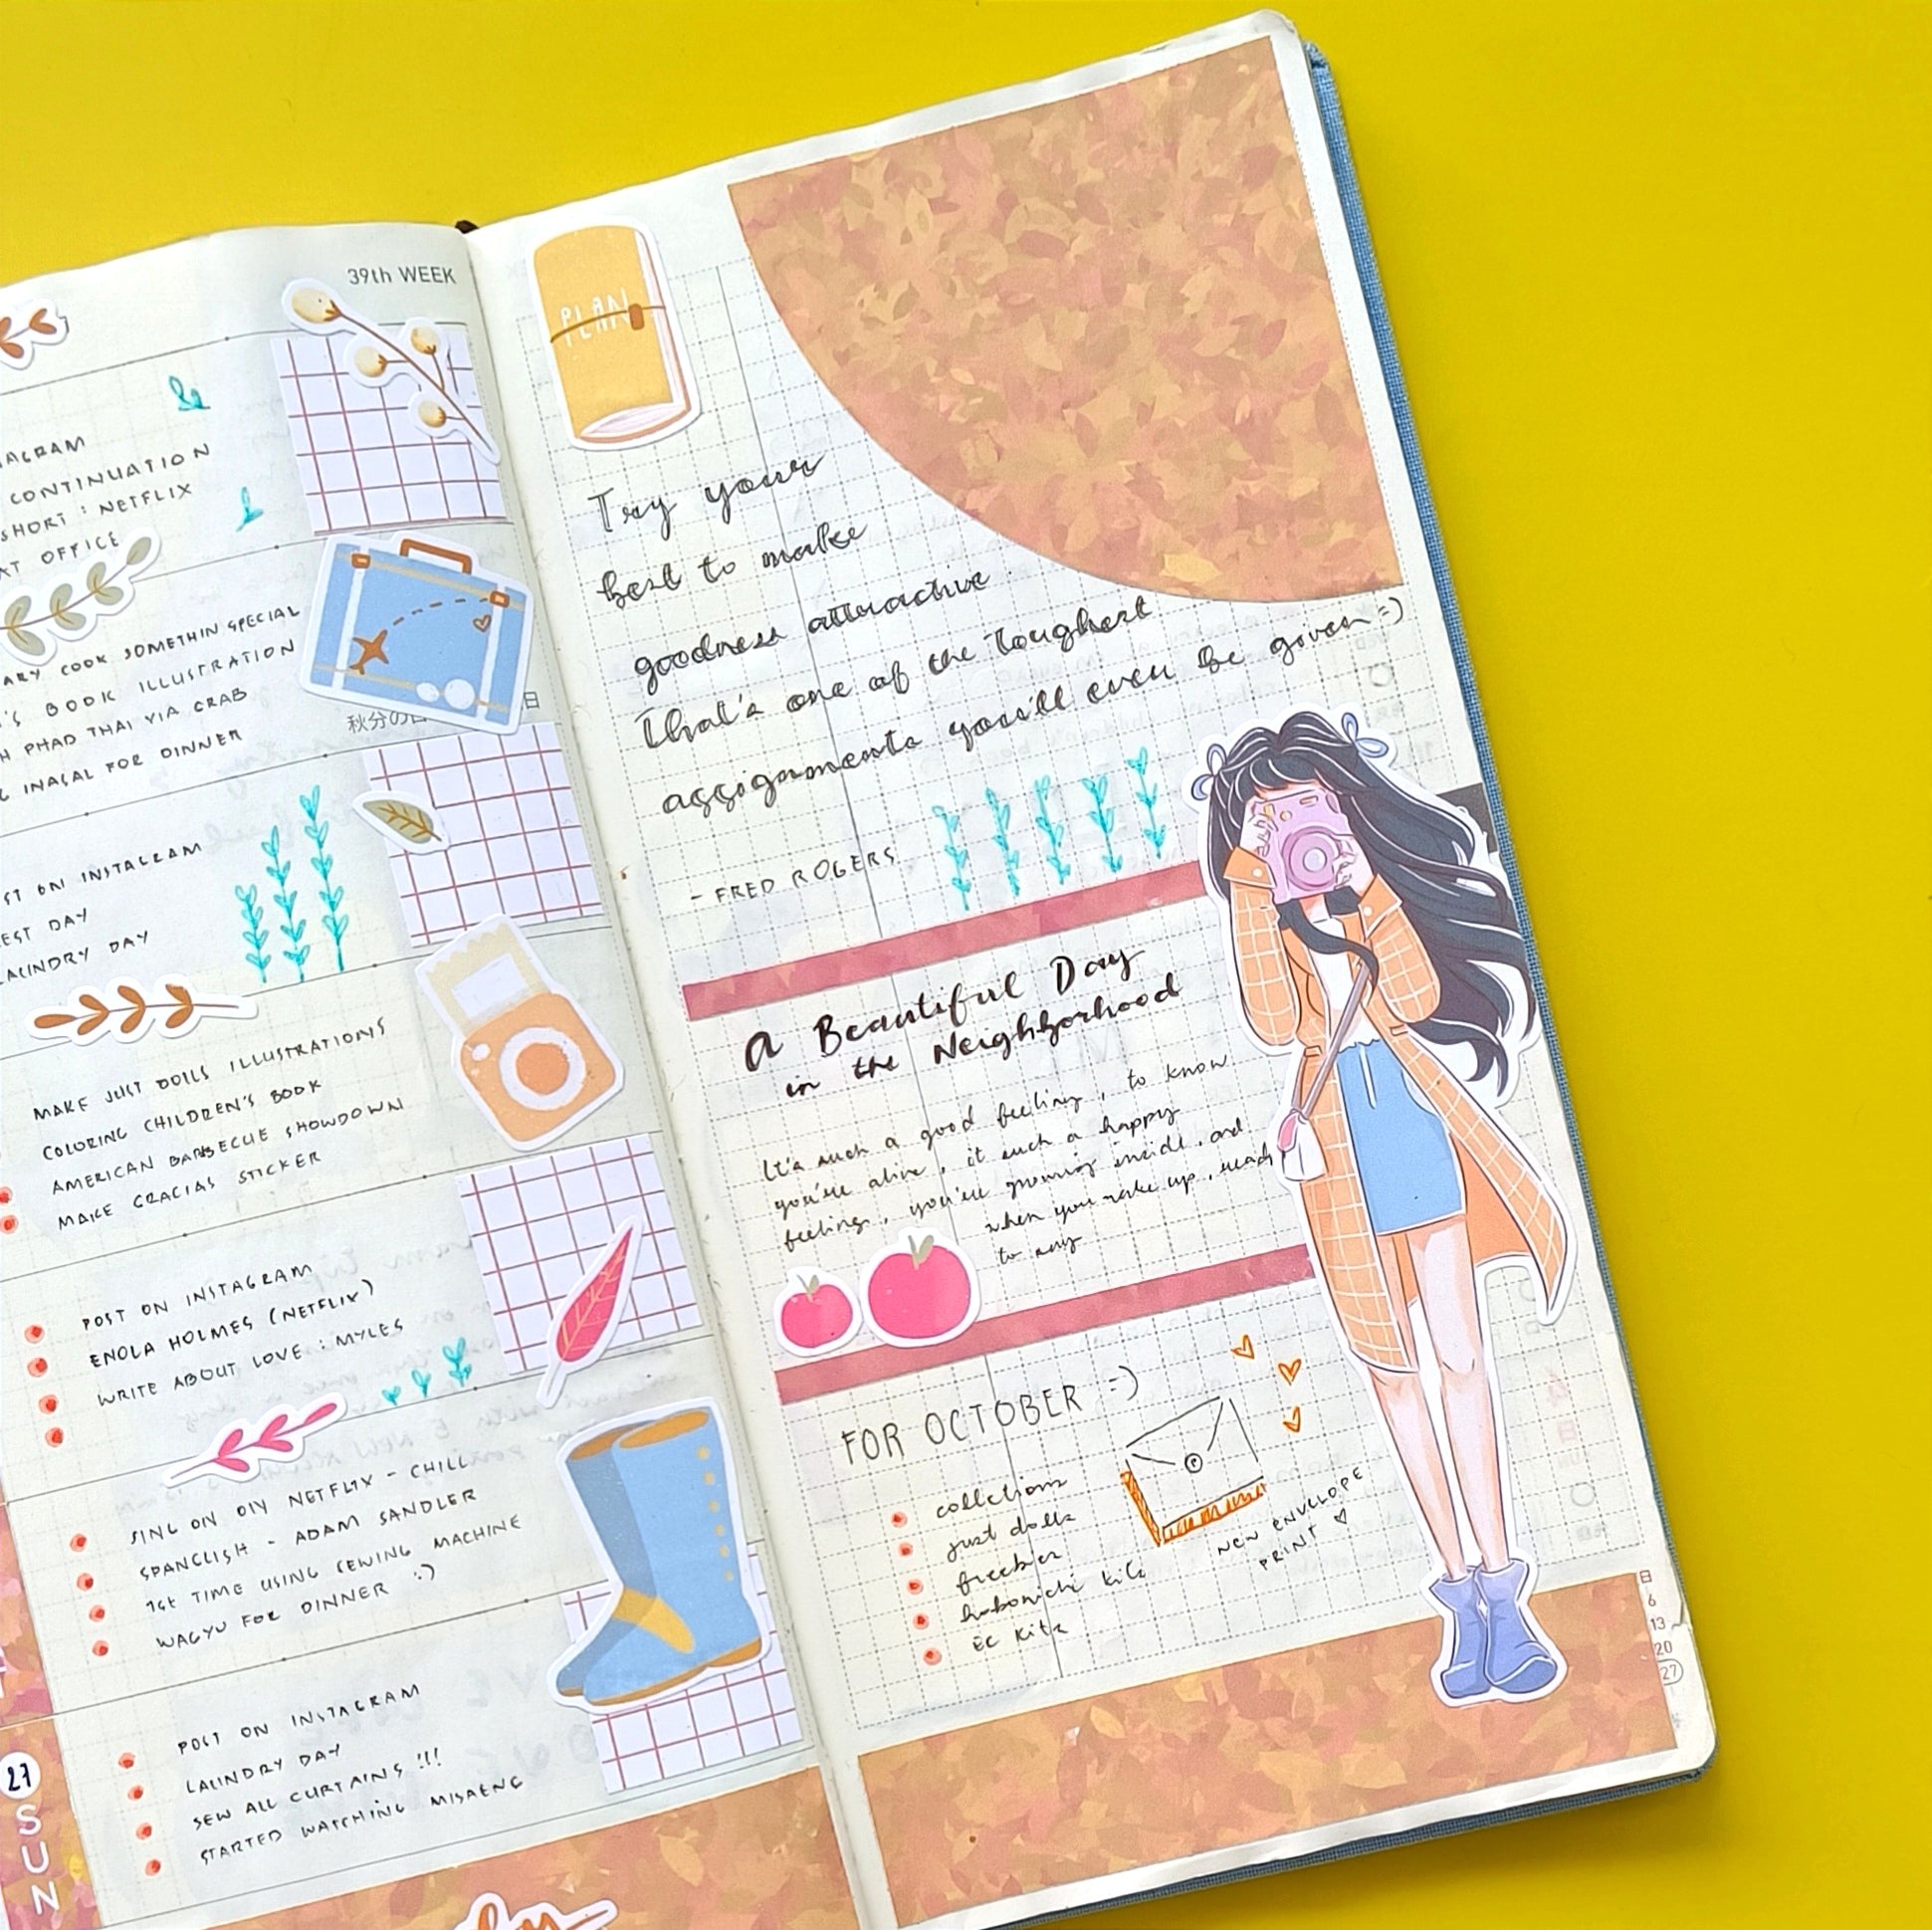 39th WEEK
CONTINUATION
SHORT : NETFLIX
AT OFFICE
COOK SOMETHIN SPECIAL
'S BOOK ILLUSTRATION
PHAD THAI VIA CRAB
INASAL FOR DINNER
秋分の日
ON INSTAGRAM
DAY
LAUNDRY DAY
MAKE JUST DOLLS ILLUSTRATIONS
COLORING CHILDREN'S BOOK
AMERICAN BARBECUE SHOWDOWN
MAKE GRACIAS STICKER
POST ON INSTAGRAM
ENOLA HOLMES (NETFLIX)
WRITE ABOUT LOVE : MYLES
ON DIY NETFLIX - CHILL
SPANGLISH - ADAM SANDLER
1st TIME USING SEWING MACHINE
WAGYU FOR DINNER :)
27
SUN
POST ON INSTAGRAM
LAUNDRY DAY
SEW ALL CURTAINS !!!
STARTED WATCHING MISAENG
PLAN
Try your
best to make
goodness attractive.
That's one of the toughest
assignments you'll ever be given =)
- FRED ROGERS
A Beautiful Day
in the Neighborhood
It's such a good feeling, to know
you're alive, it such a happy
feeling, you're growing inside, and
when you wake up, ready
to say
FOR OCTOBER =)
collections
just dolls
freebies
hobonichi kits
EC kits
NEW ENVELOPE
PRINT ♡
日
6
13
20
27